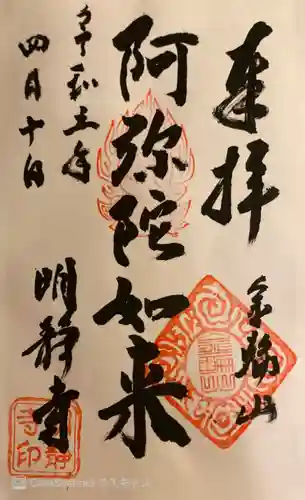 奉拝
金鶏山
阿弥陀如来
明静寺
令和五年
四月十日
CamScanner